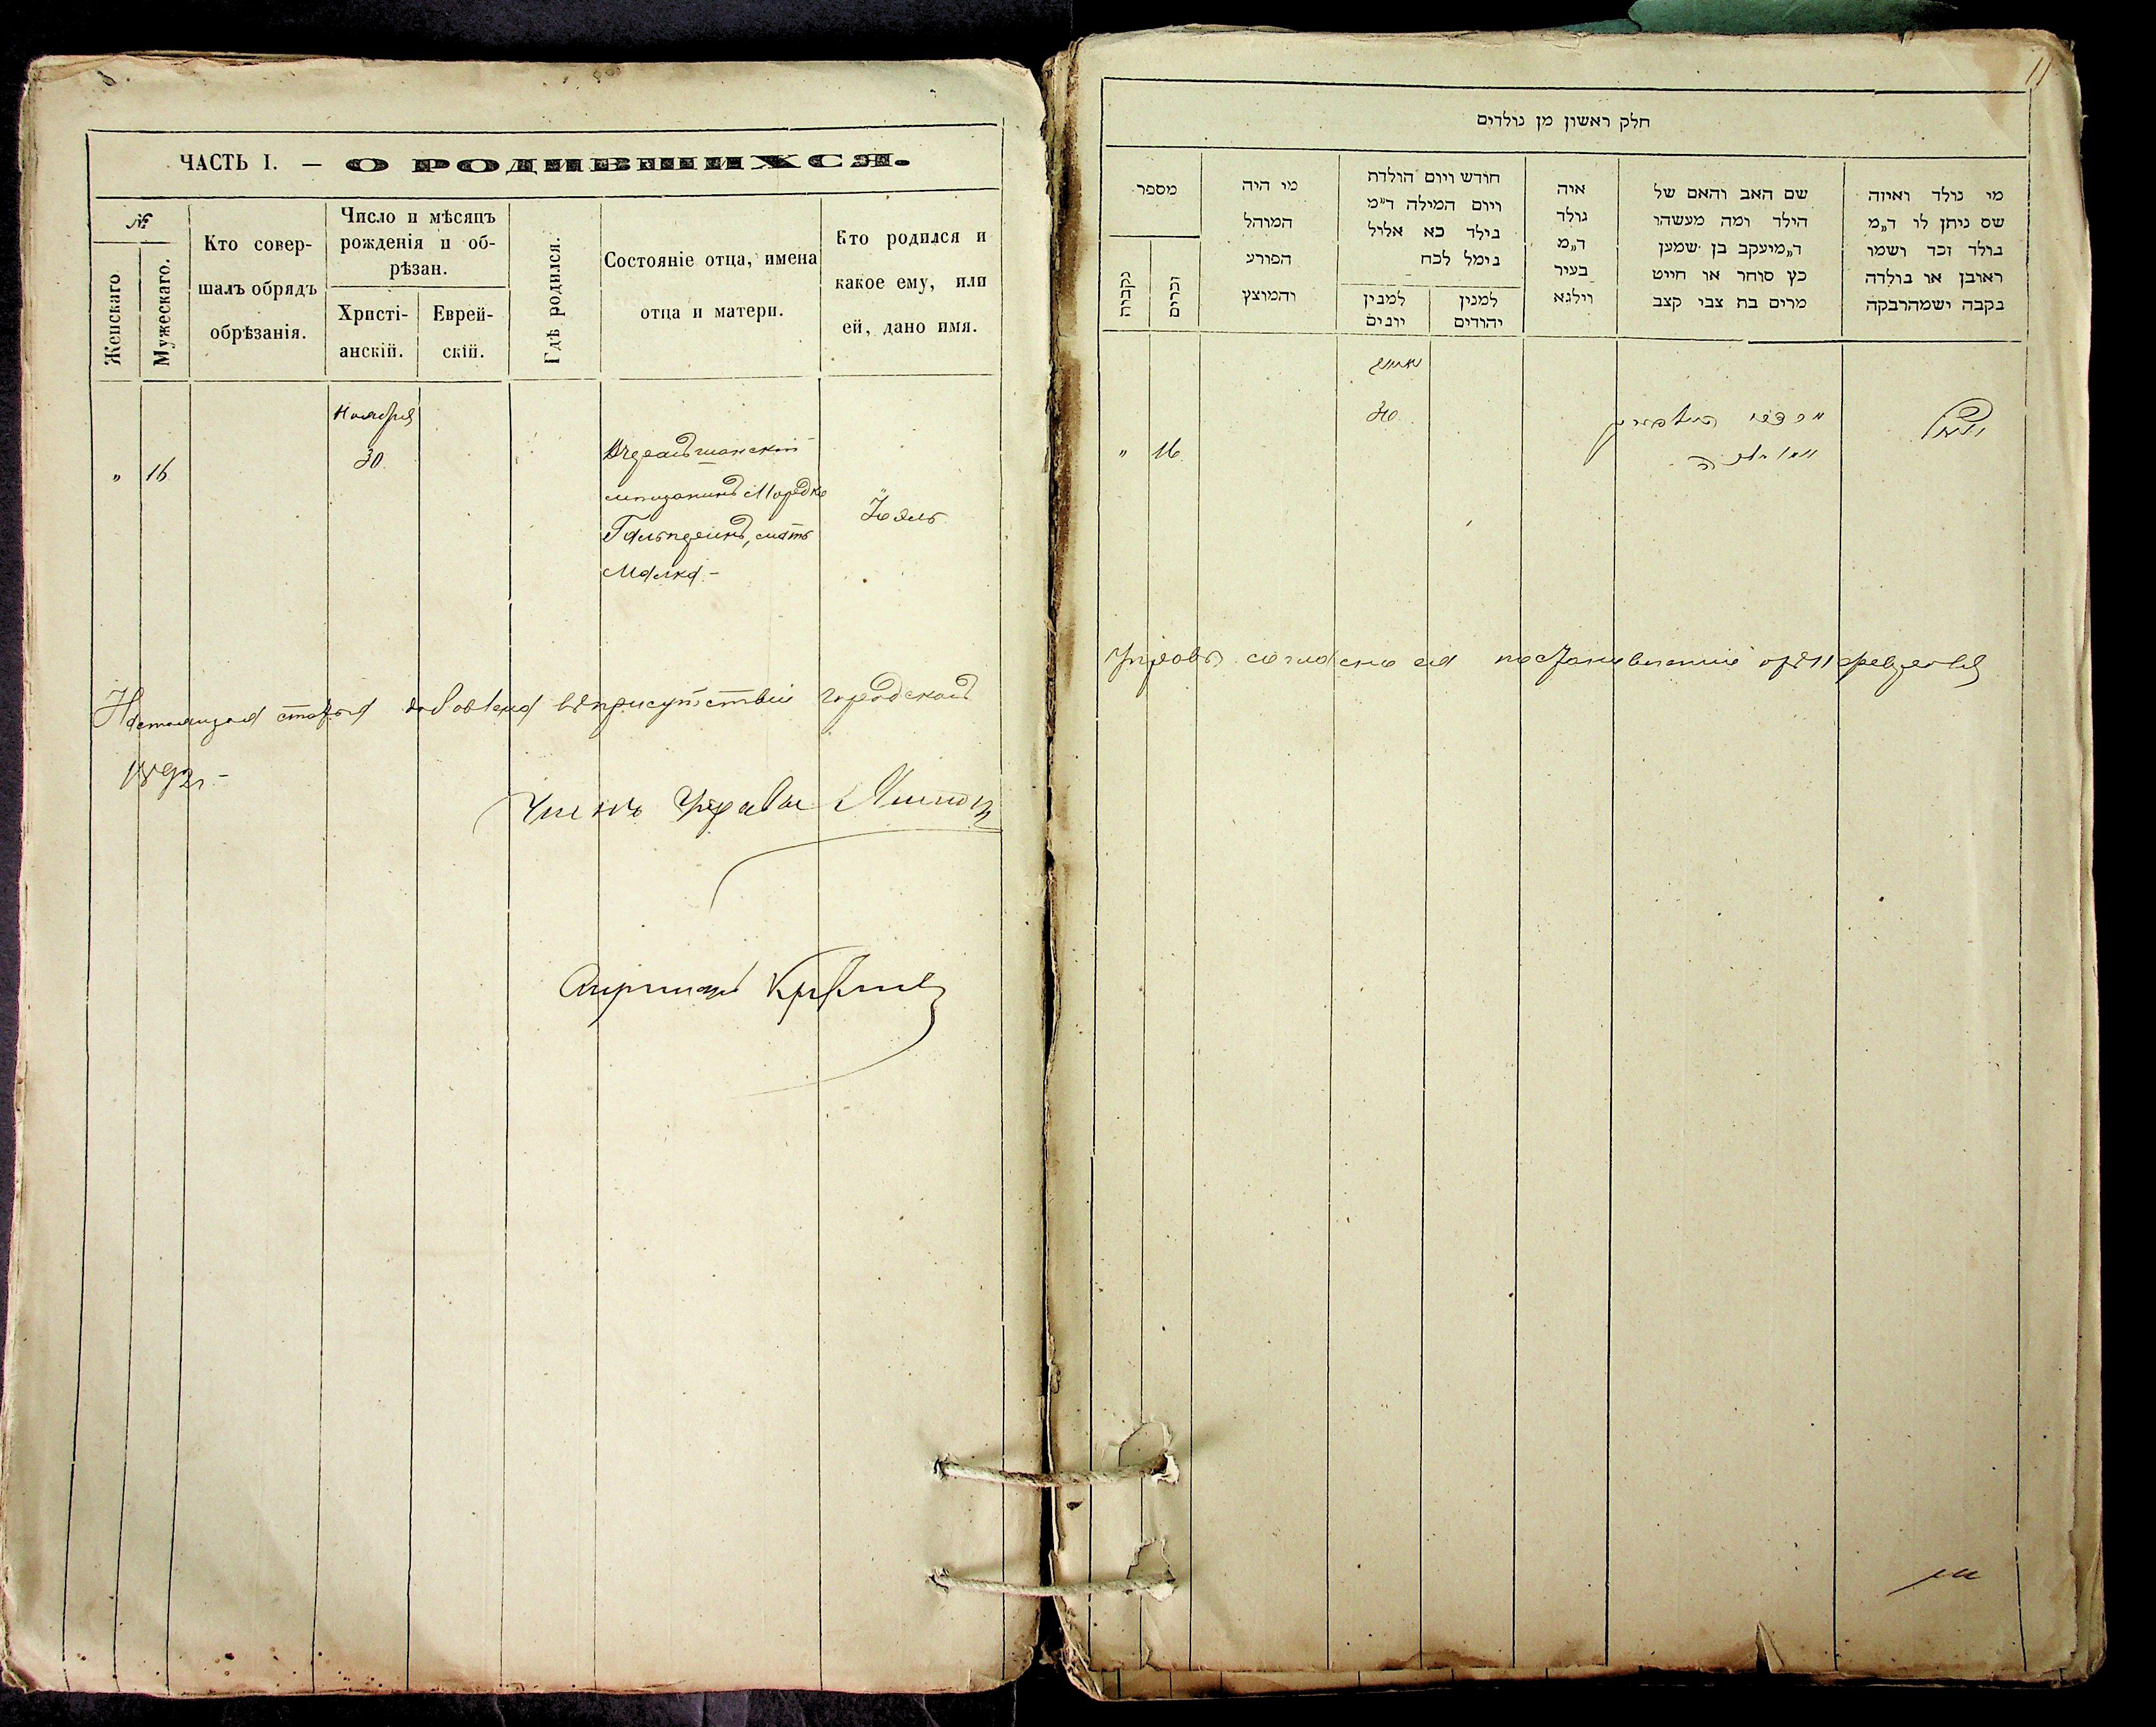 ЧАСТЬ I. — О РОДИВШИХСЯ.
№
Женскаго
Мужескаго.
Кто совер-
шалъ обрядъ
обрѣзанія.
Число и мѣсяцъ
рожденія и об-
рѣзан.
Христі-
анскій.
Еврей-
скій.
Гдѣ родился.
Состояніе отца, имена
отца и матери.
Кто родился и
какое ему, или
ей, дано имя.
" 16
Ноября
30
мѣщанинъ Мордко
Гальперинъ, мать
Малка -
Настоящая статья въ присутствіи городской
1892 г. -
Членъ Управы
11
חלק ראשון מן נולדים
מספר
נקבות
זכרים
מי היה
המוהל
הפורע
והמוצץ
חודש ויום הולדת
ויום המילה ד"מ
נילד כא אליל
נימל לכח
למנין
יונים
למנין
יהודים
איה
נולד
ד"מ
בעיר
וילנא
שם האב והאם של
הילד ומה מעשהו
ד"מ יעקב בן שמען
כץ סוחר או חייט
מרים בת צבי קצב
מי נולד ואיזה
שם ניתן לו ד"מ
נולד זכר ושמו
ראובן או נולדה
נקבה ישמה רבקה
30
" 16
Управы согласно ея постановленію 11 февраля